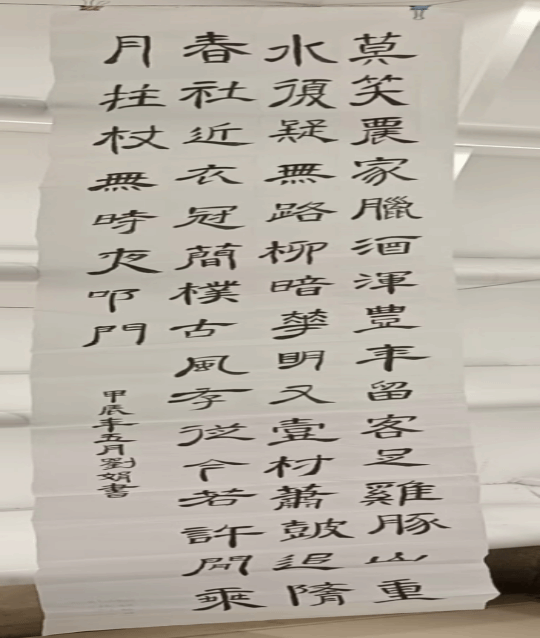 莫笑農家臘酒渾豐年留客足雞豚山重
水復疑無路柳暗華明又壹村蕭鼓追隋
春社近衣冠簡樸古風存從今若許閒乘
月拄杖無時夜叩門
甲辰年五月劉娟書